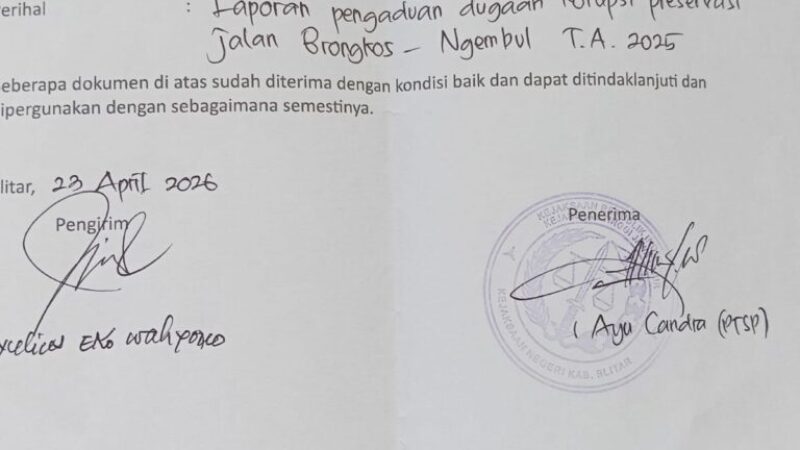 erihal : Laporan pengaduan dugaan korupsi preservasi
Jalan Brongkos - Ngembul T.A. 2025
eberapa dokumen di atas sudah diterima dengan kondisi baik dan dapat ditindaklanjuti dan
ipergunakan dengan sebagaimana semestinya.
litar, 23 April 2026
Pengirim
Penerima
KEJAKSAAN NEGERI KAB. BLITAR
EKO Wahyono
Ayu Candra (PTSP)